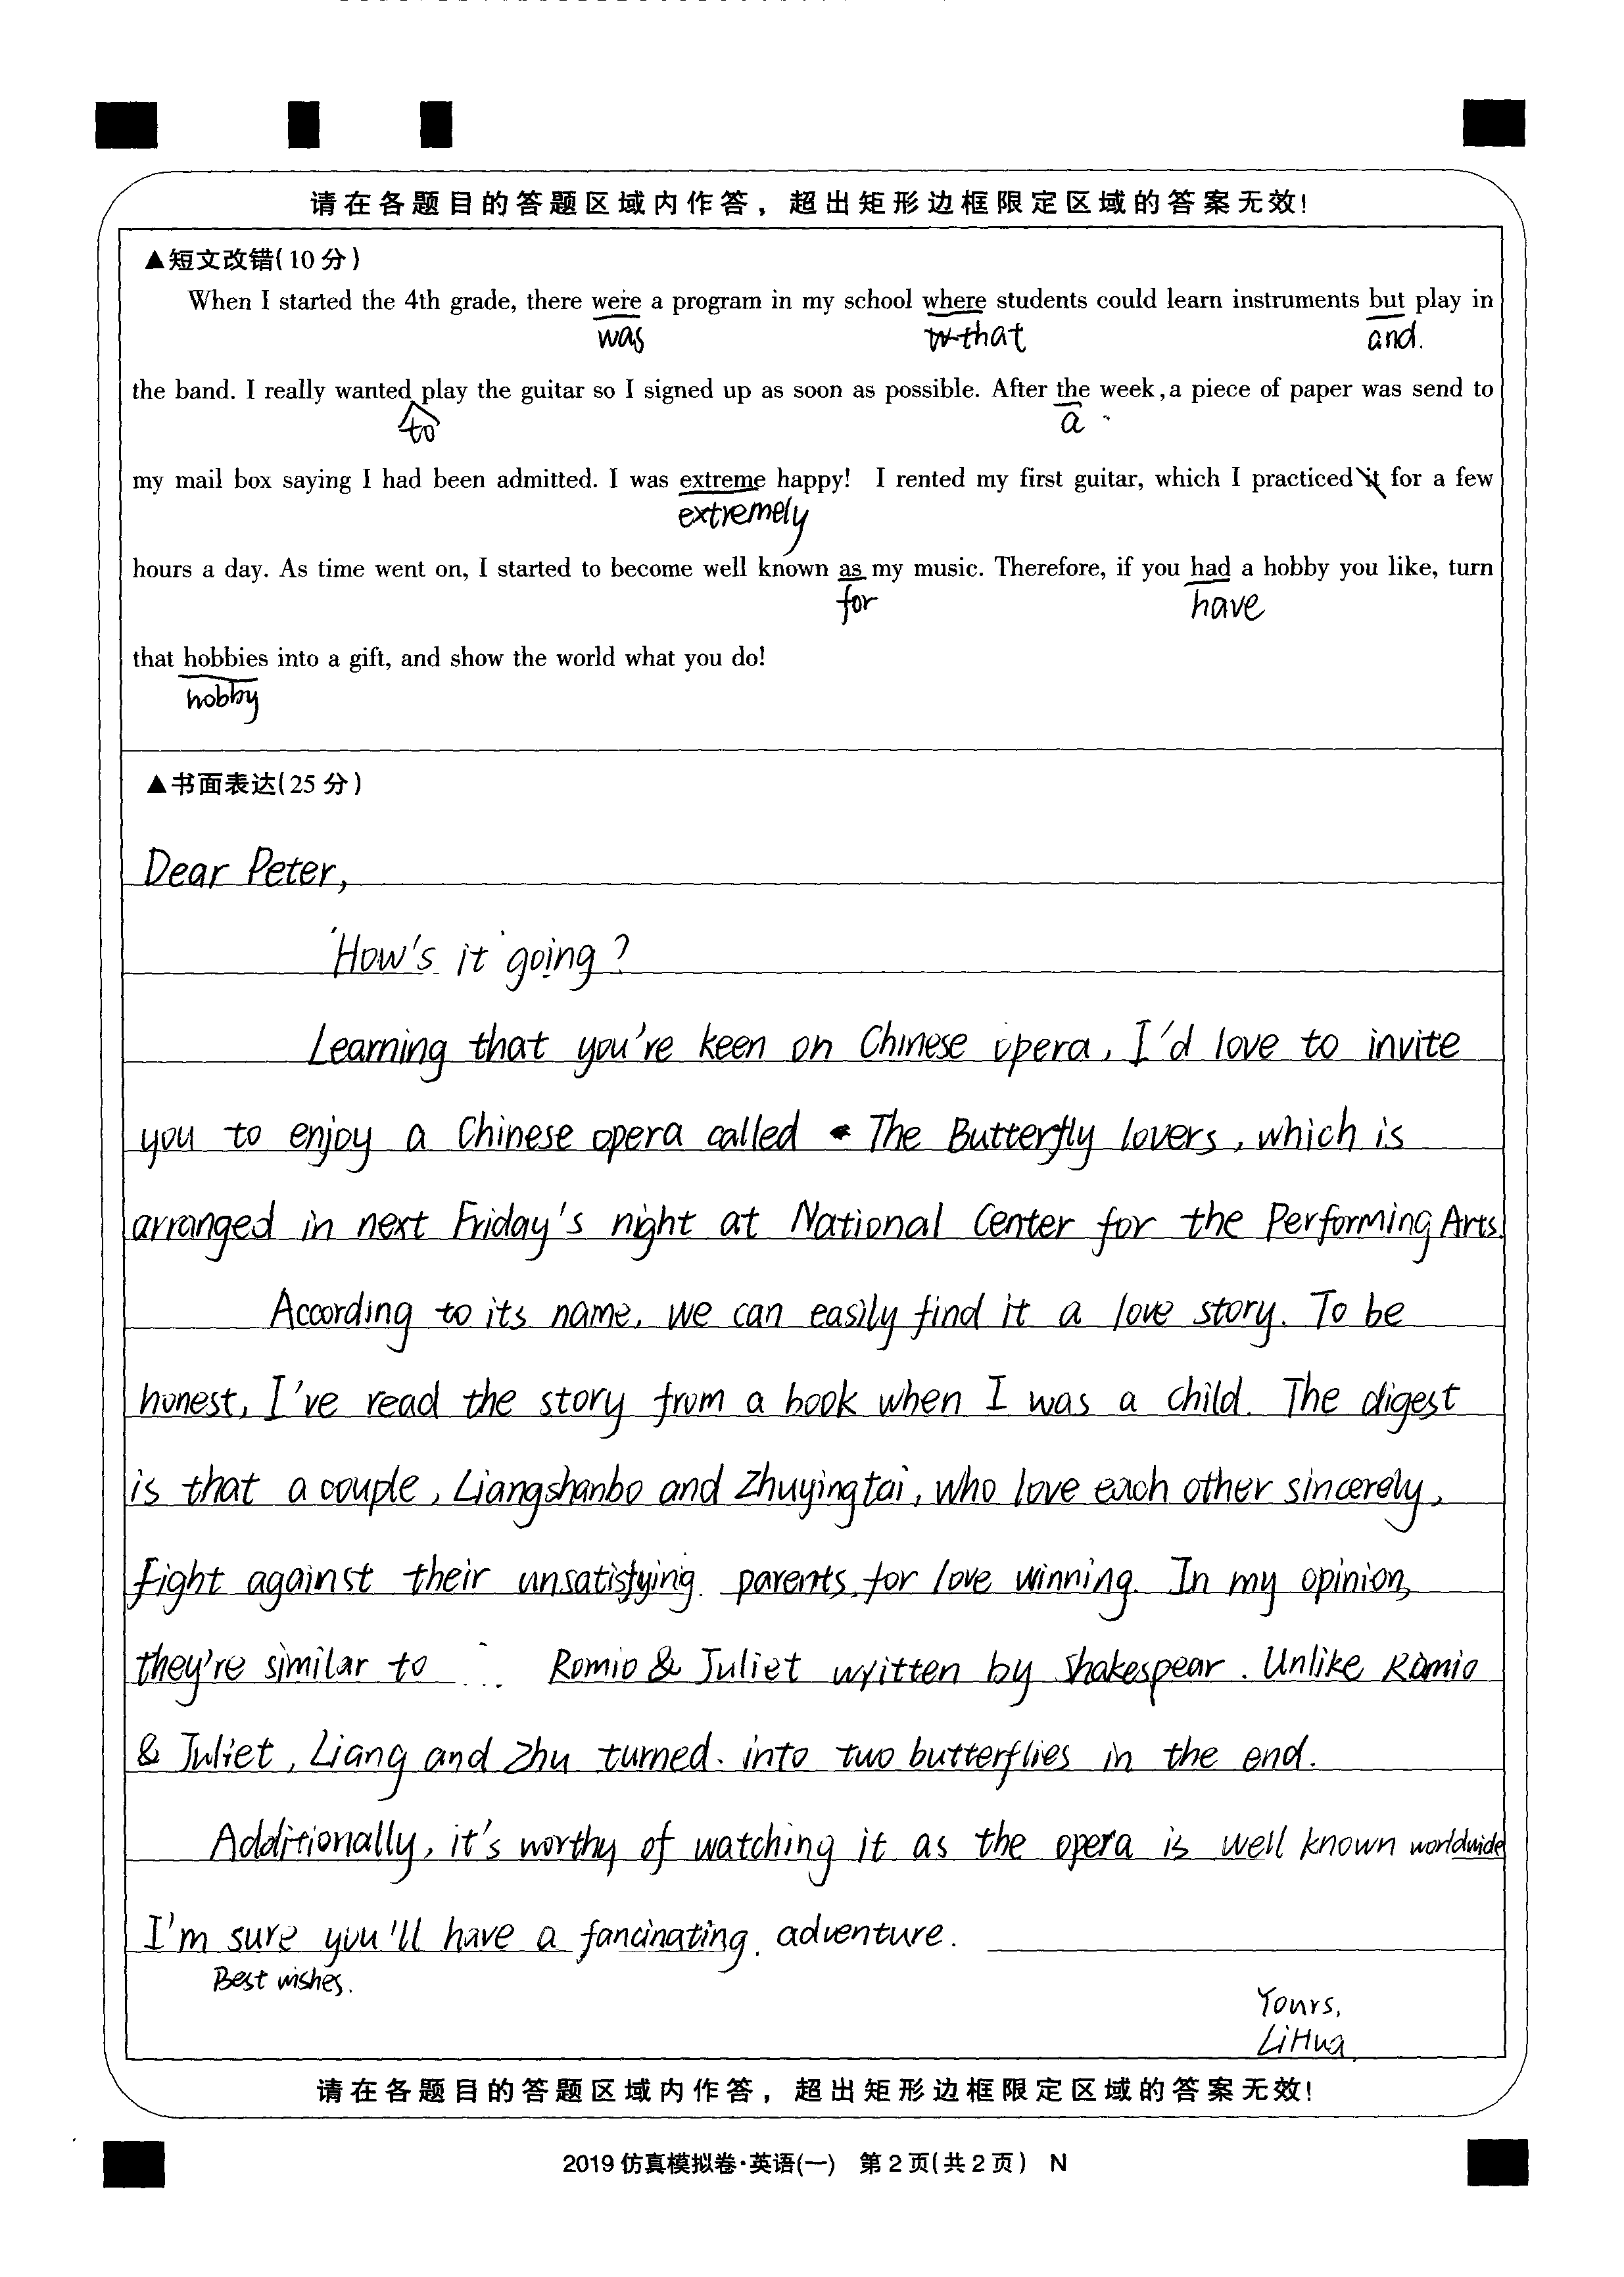 请在各题目的答题区域内作答，超出矩形边框限定区域的答案无效!
▲短文改错(10分)
When I started the 4th grade, there were a program in my school where students could learn instruments but play in
was that and.
the band. I really wanted play the guitar so I signed up as soon as possible. After the week, a piece of paper was send to
to a
my mail box saying I had been admitted. I was extreme happy! I rented my first guitar, which I practiced it for a few
extremely
hours a day. As time went on, I started to become well known as my music. Therefore, if you had a hobby you like, turn
for have
that hobbies into a gift, and show the world what you do!
hobby
▲书面表达(25分)
Dear Peter,
How's it going?
Learning that you're keen on Chinese opera, I'd love to invite
you to enjoy a Chinese opera called The Butterfly lovers, which is
arranged in next Friday's night at National Center for the Performing Arts.
According to its name, we can easily find it a love story. To be
honest, I've read the story from a book when I was a child. The digest
is that a couple, Liangshanbo and Zhuyingtai, who love each other sincerely,
fight against their unsatisfying parents for love winning. In my opinion,
they're similar to Romio & Juliet written by Shakespear. Unlike Romio
& Juliet, Liang and Zhu turned into two butterflies in the end.
Additionally, it's worthy of watching it as the opera is well known worldwide
I'm sure you'll have a fancinating adventure.
Best wishes.
Yours,
LiHua
请在各题目的答题区域内作答，超出矩形边框限定区域的答案无效!
2019仿真模拟卷·英语(一) 第2页(共2页) N